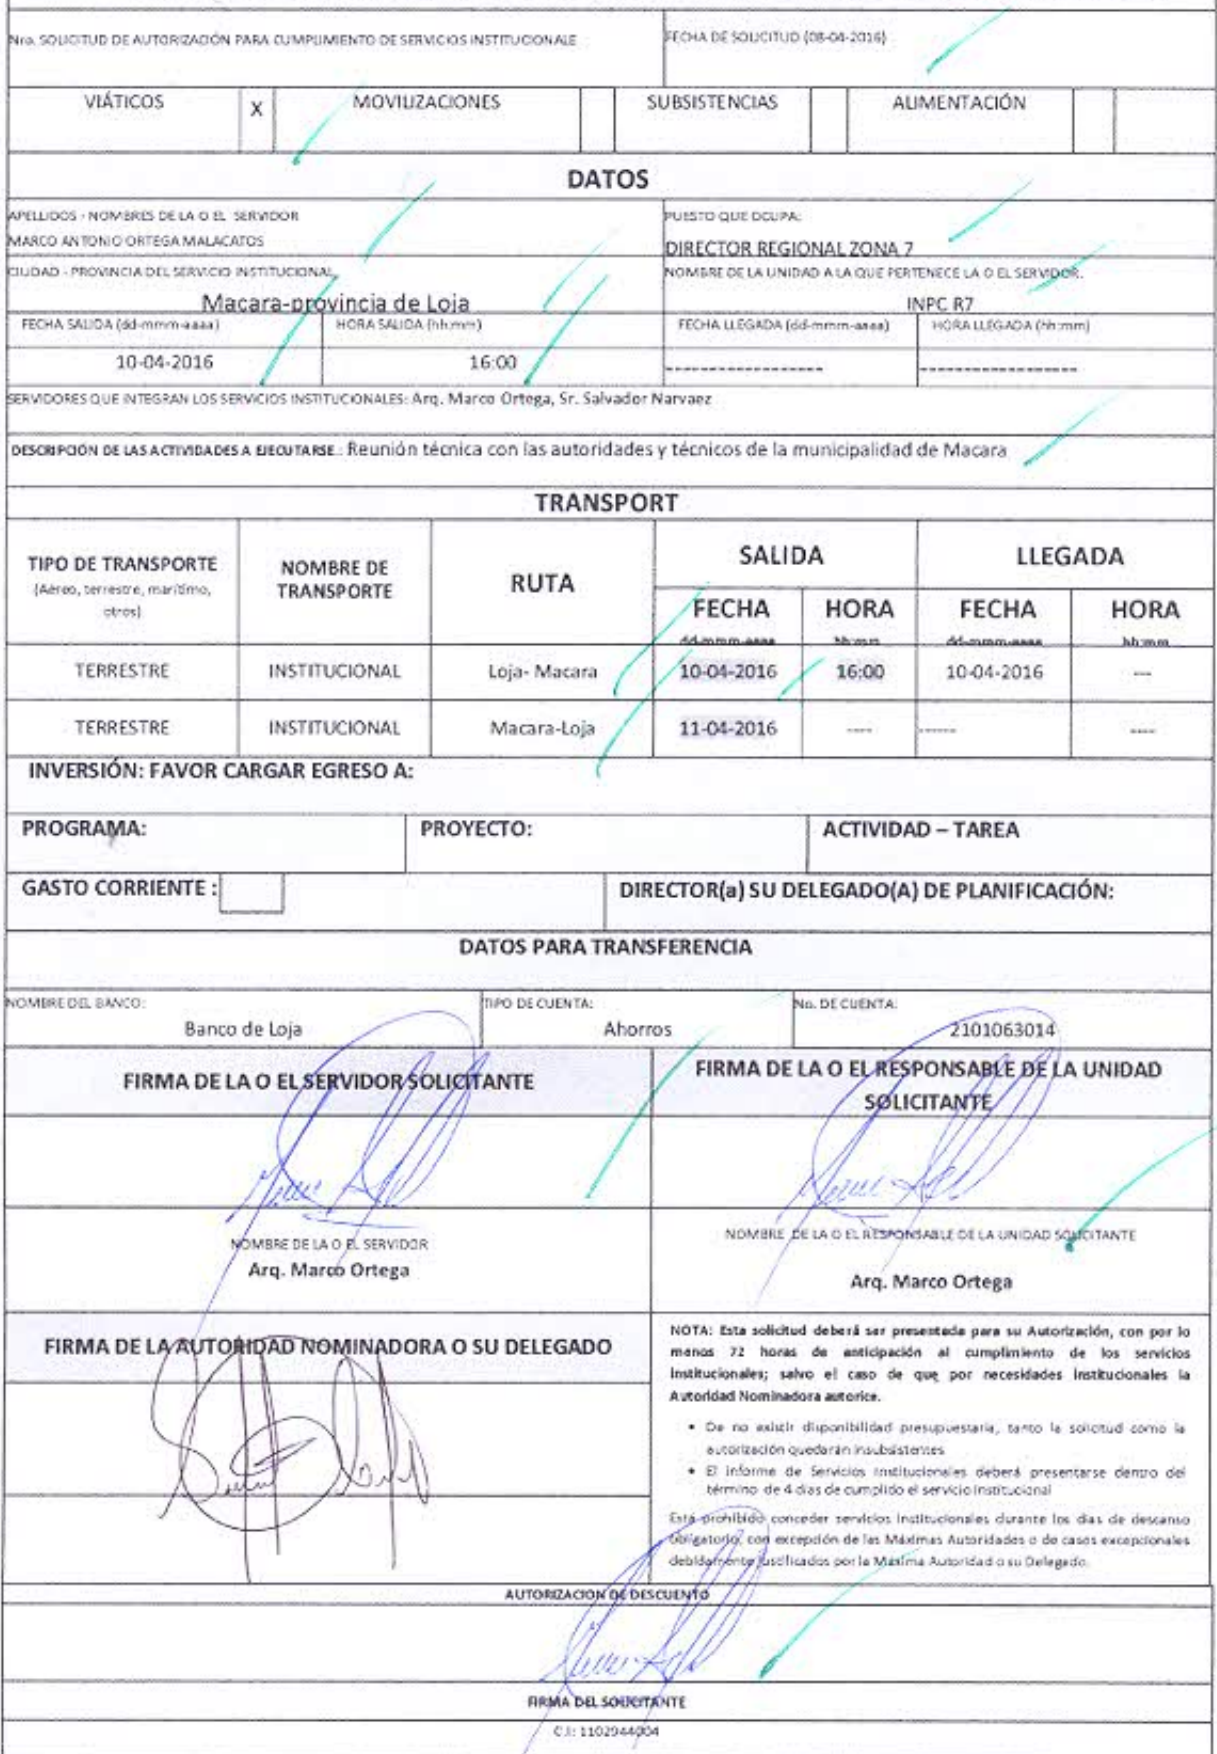 Nro. SOLICITUD DE AUTORIZACIÓN PARA CUMPLIMIENTO DE SERVICIOS INSTITUCIONALE
FECHA DE SOLICITUD (08-04-2016)
VIÁTICOS X MOVILIZACIONES SUBSISTENCIAS ALIMENTACIÓN
DATOS
APELLIDOS - NOMBRES DE LA O EL SERVIDOR
MARCO ANTONIO ORTEGA MALACATOS
PUESTO QUE OCUPA:
DIRECTOR REGIONAL ZONA 7
CIUDAD - PROVINCIA DEL SERVICIO INSTITUCIONAL
Macara-provincia de Loja
NOMBRE DE LA UNIDAD A LA QUE PERTENECE LA O EL SERVIDOR.
INPC R7
FECHA SALIDA (dd-mmm-aaaa) HORA SALIDA (hh:mm) FECHA LLEGADA (dd-mmm-aaaa) HORA LLEGADA (hh:mm)
10-04-2016 16:00 ------------------ ------------------
SERVIDORES QUE INTEGRAN LOS SERVICIOS INSTITUCIONALES: Arq. Marco Ortega, Sr. Salvador Narvaez
DESCRIPCIÓN DE LAS ACTIVIDADES A EJECUTARSE.: Reunión técnica con las autoridades y técnicos de la municipalidad de Macara
TRANSPORT
TIPO DE TRANSPORTE
(Aéreo, terrestre, marítimo,
otros)
NOMBRE DE
TRANSPORTE
RUTA
SALIDA LLEGADA
FECHA HORA FECHA HORA
dd-mmm-aaaa hh:mm dd-mmm-aaaa hh:mm
TERRESTRE INSTITUCIONAL Loja- Macara 10-04-2016 16:00 10-04-2016 ---
TERRESTRE INSTITUCIONAL Macara-Loja 11-04-2016 ---- ------ ----
INVERSIÓN: FAVOR CARGAR EGRESO A:
PROGRAMA: PROYECTO: ACTIVIDAD – TAREA
GASTO CORRIENTE : DIRECTOR(a) SU DELEGADO(A) DE PLANIFICACIÓN:
DATOS PARA TRANSFERENCIA
NOMBRE DEL BANCO: TIPO DE CUENTA: No. DE CUENTA:
Banco de Loja Ahorros 2101063014
FIRMA DE LA O EL SERVIDOR SOLICITANTE
FIRMA DE LA O EL RESPONSABLE DE LA UNIDAD
SOLICITANTE
NOMBRE DE LA O EL SERVIDOR
Arq. Marco Ortega
NOMBRE DE LA O EL RESPONSABLE DE LA UNIDAD SOLICITANTE
Arq. Marco Ortega
FIRMA DE LA AUTORIDAD NOMINADORA O SU DELEGADO
NOTA: Esta solicitud deberá ser presentada para su Autorización, con por lo
menos 72 horas de anticipación al cumplimiento de los servicios
Institucionales; salvo el caso de que por necesidades Institucionales la
Autoridad Nominadora autorice.
• De no existir disponibilidad presupuestaria, tanto la solicitud como la
autorización quedarán insubsistentes
• El informe de Servicios Institucionales deberá presentarse dentro del
término de 4 días de cumplido el servicio institucional
Está prohibido conceder servicios institucionales durante los días de descanso
obligatorio, con excepción de las Máximas Autoridades o de casos excepcionales
debidamente justificados por la Máxima Autoridad o su Delegado.
AUTORIZACION DE DESCUENTO
FIRMA DEL SOLICITANTE
C.I: 1102944004